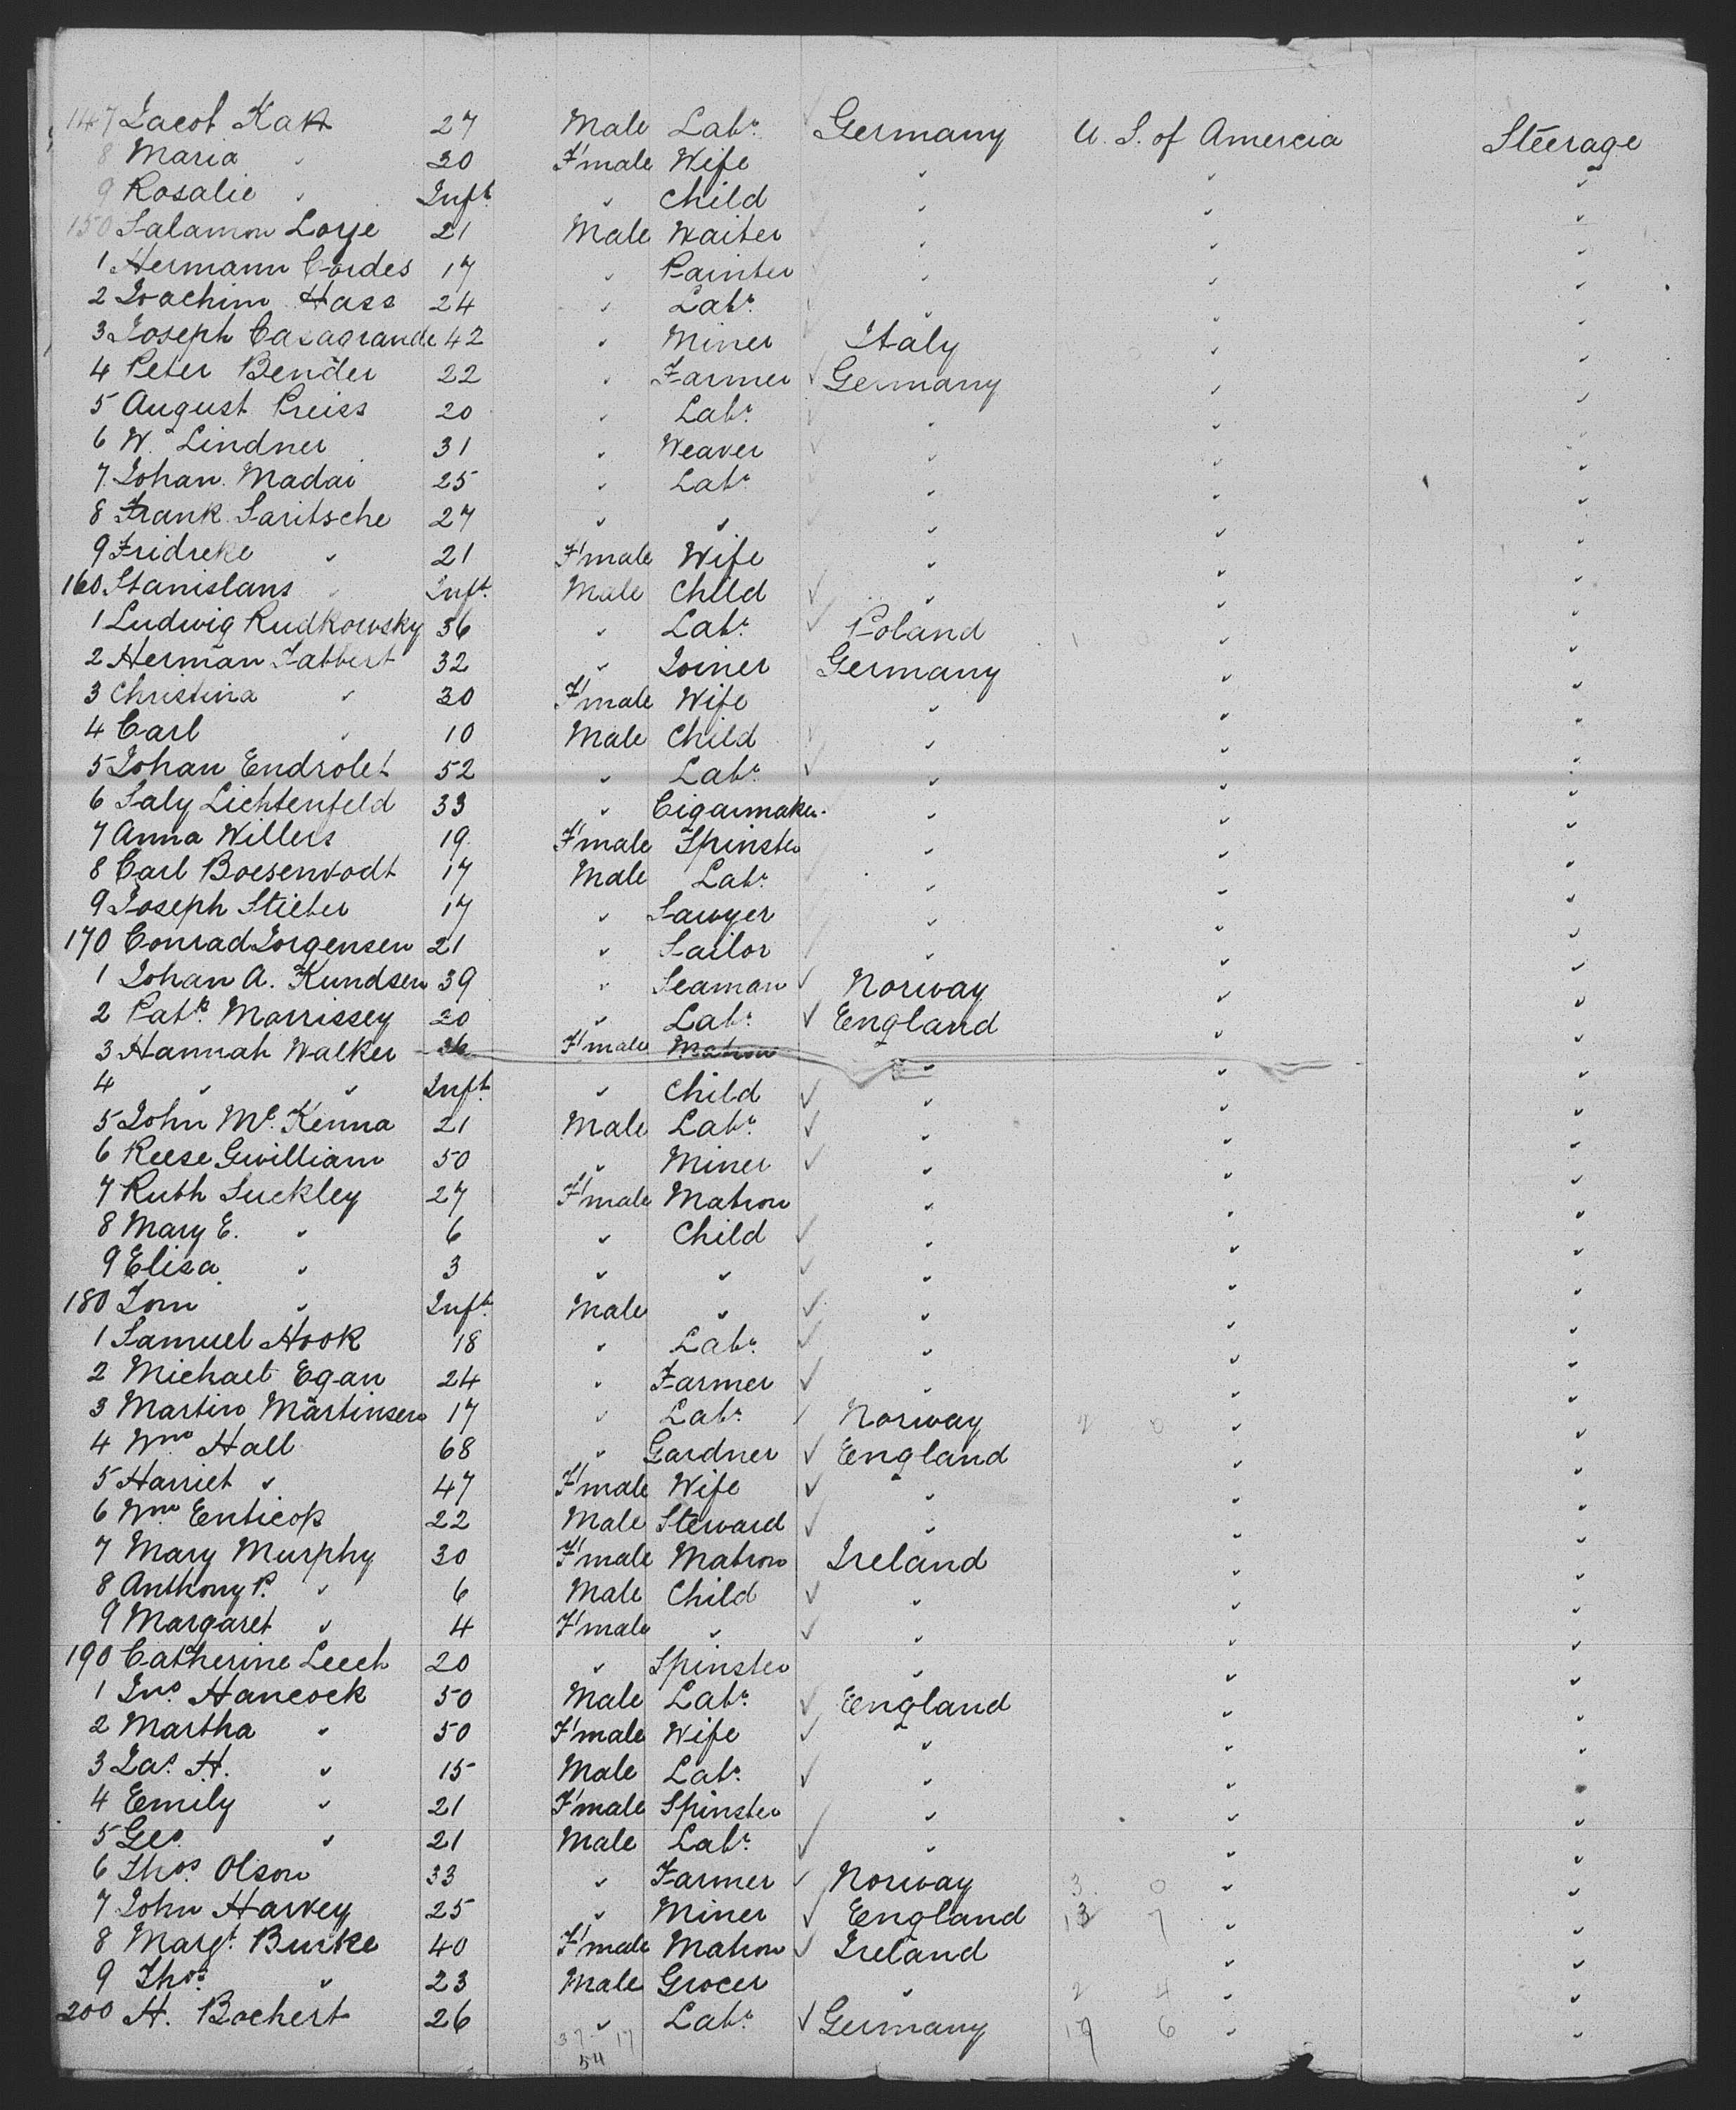 147 Jacob Kak 27 Male Labr. Germany U. S. of Amercia Steerage
8 Maria " 30 F'male Wife " " "
9 Rosalie " Inft. " Child " " "
150 Salamon Loye 21 Male Waiter " " "
1 Hermann Cordes 17 " Painter " " "
2 Joachim Hass 24 " Labr. " " "
3 Joseph Casagrande 42 " Miner Italy " "
4 Peter Bender 22 " Farmer Germany " "
5 August Preiss 20 " Labr. " " "
6 W. Lindner 31 " Weaver " " "
7 Johan Madai 25 " Labr. " " "
8 Frank Saritsche 27 " " " " "
9 Fridreke " 21 F'male Wife " " "
160 Stanislans " Inft. Male Child " " "
1 Ludwig Rudkowsky 36 " Labr. Poland " "
2 Herman Fabbert 32 " Joiner Germany " "
3 Christina " 30 F'male Wife " " "
4 Carl " 10 Male Child " " "
5 Johan Endrolet 52 " Labr. " " "
6 Saly Lichtenfeld 33 " Cigarmaker " " "
7 Anna Willers 19 F'male Spinster " " "
8 Carl Boesenvodt 17 Male Labr. " " "
9 Joseph Stieber 17 " Sawyer " " "
170 Conrad Jorgensen 21 " Sailor " " "
1 Johan A. Kundsen 39 " Seaman Norway " "
2 Patk. Morrissey 20 " Labr. England " "
3 Hannah Walker 36 F'male Matron " " "
4 " " Inft. " Child " " "
5 John Mc. Kenna 21 Male Labr. " " "
6 Reese Gwilliam 50 " Miner " " "
7 Ruth Suckley 27 F'male Matron " " "
8 Mary E. " 6 " Child " " "
9 Elisa " 3 " " " " "
180 Tom " Inft. Male " " " "
1 Samuel Hook 18 " Labr. " " "
2 Michael Egan 24 " Farmer " " "
3 Martin Martinsen 17 " Labr. Norway 2 0 " "
4 Wm. Hall 68 " Gardner England " "
5 Harriet " 47 F'male Wife " " "
6 Wm. Enticop 22 Male Steward " " "
7 Mary Murphy 30 F'male Matron Ireland " "
8 Anthony P. " 6 Male Child " " "
9 Margaret " 4 F'male " " " "
190 Catherine Leech 20 " Spinster " " "
1 Jno. Hancock 50 Male Labr. England " "
2 Martha " 50 F'male Wife " " "
3 Jas. H. " 15 Male Labr. " " "
4 Emily " 21 F'male Spinster " " "
5 Geo. " 21 Male Labr. " " "
6 Thos. Olson 33 " Farmer Norway 3 0 " "
7 John Harvey 25 " Miner England 13 7 " "
8 Margt. Burke 40 F'male Matron Ireland " "
9 Thos. " 23 Male Grocer " 2 4 " "
200 H. Bochert 26 " Labr. Germany 19 6 " "
37 17
54